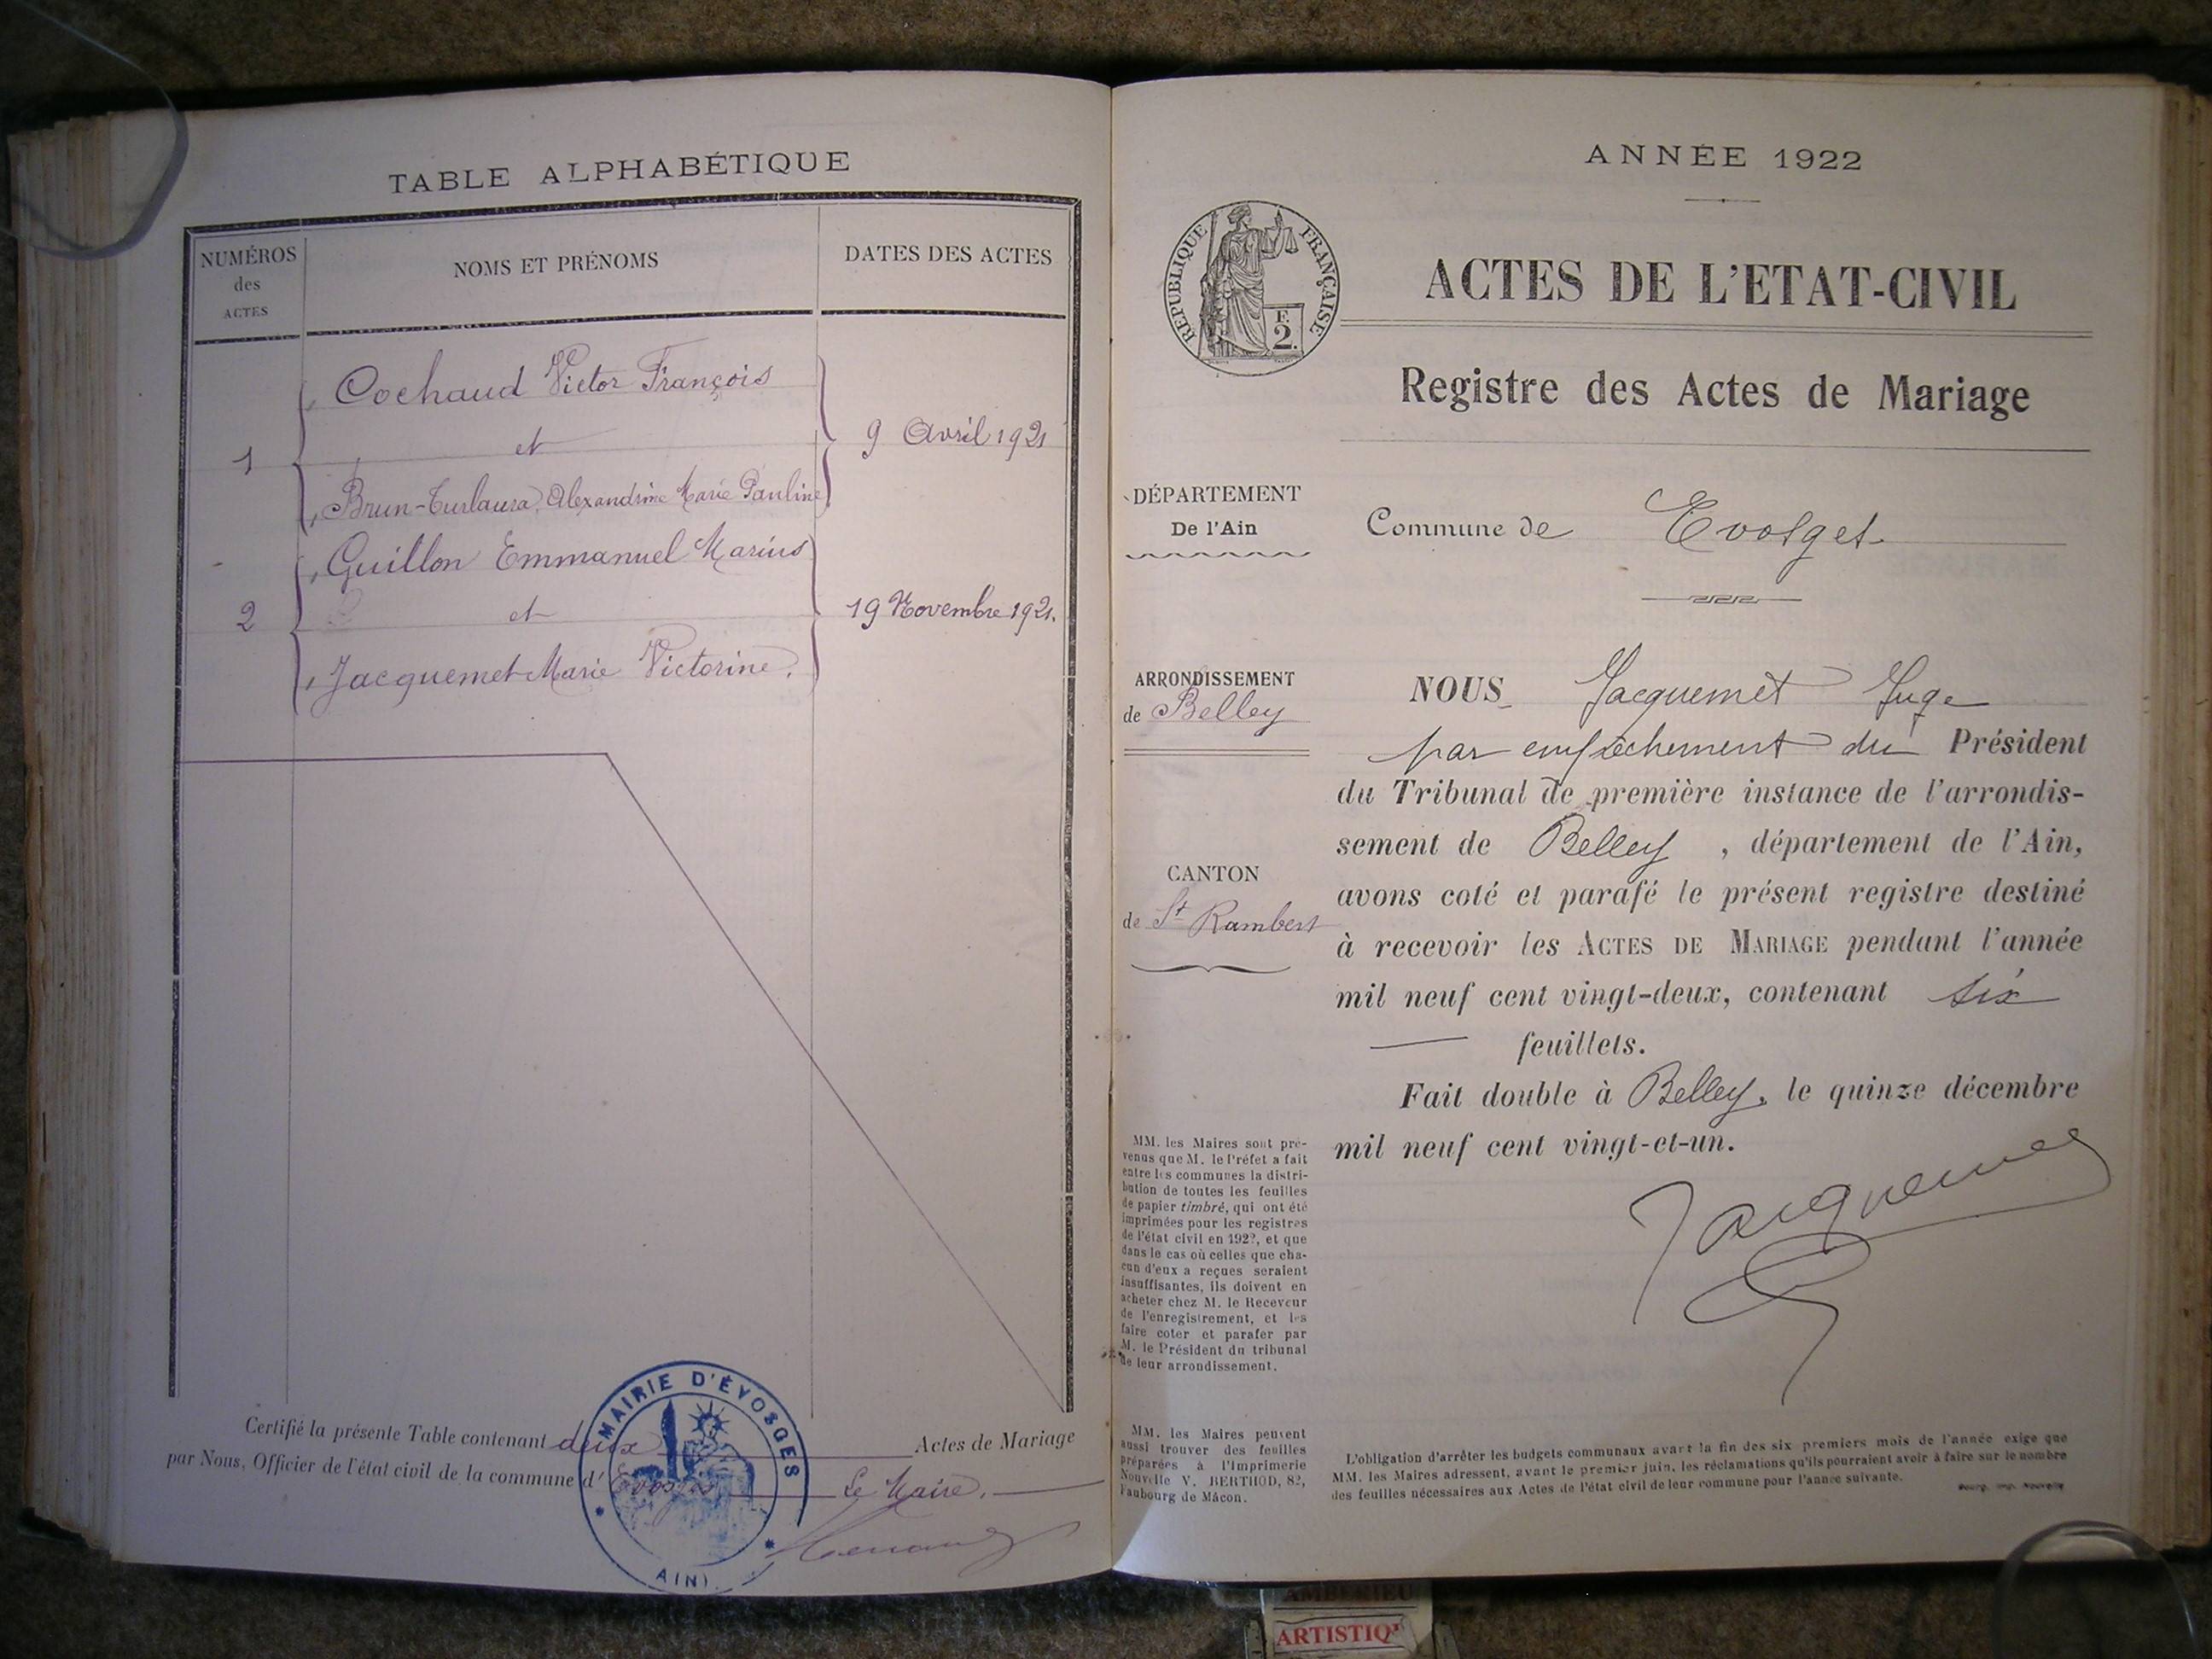 TABLE ALPHABÉTIQUE
NUMÉROS
des
ACTES
NOMS ET PRÉNOMS
DATES DES ACTES
Cochaud Victor François
1 et 9 Avril 1921
Brun-Turlaura, Alexandrine Marie Pauline
Guillon Emmanuel Marius
2 et 19 Novembre 1921.
Jacquemet Marie Victorine.
Certifié la présente Table contenant deux Actes de Mariage
par Nous, Officier de l'état civil de la commune d' Evosges Le Maire.
MAIRIE D'ÉVOSGES
(AIN)
ANNÉE 1922
RÉPUBLIQUE FRANÇAISE
F.
2.
ACTES DE L'ETAT-CIVIL
Registre des Actes de Mariage
DÉPARTEMENT
De l'Ain
Commune de Evosges.
ARRONDISSEMENT
de Belley
CANTON
de St Rambert
NOUS Jacquemet Juge
par empêchement du Président
du Tribunal de première instance de l'arrondis-
sement de Belley , département de l'Ain,
avons coté et parafé le présent registre destiné
à recevoir les ACTES DE MARIAGE pendant l'année
mil neuf cent vingt-deux, contenant six
feuillets.
Fait double à Belley, le quinze décembre
mil neuf cent vingt-et-un.
Jacquemet
MM. les Maires sont pré-
venus que M. le Préfet a fait
entre les communes la distri-
bution de toutes les feuilles
de papier timbré, qui ont été
imprimées pour les registres
de l'état civil en 1922, et que
dans le cas où celles que cha-
cun d'eux a reçues seraient
insuffisantes, ils doivent en
acheter chez M. le Receveur
de l'enregistrement, et les
faire coter et parafer par
M. le Président du tribunal
de leur arrondissement.
MM. les Maires peuvent
aussi trouver des feuilles
préparées à l'Imprimerie
Nouvelle V. BERTHOD, 82,
Faubourg de Mâcon.
L'obligation d'arrêter les budgets communaux avant la fin des six premiers mois de l'année exige que
MM. les Maires adressent, avant le premier juin, les réclamations qu'ils pourraient avoir à faire sur le nombre
des feuilles nécessaires aux Actes de l'état civil de leur commune pour l'année suivante.
Bourg, Imp. Nouvelle
AMBERIEU
ARTISTIQ